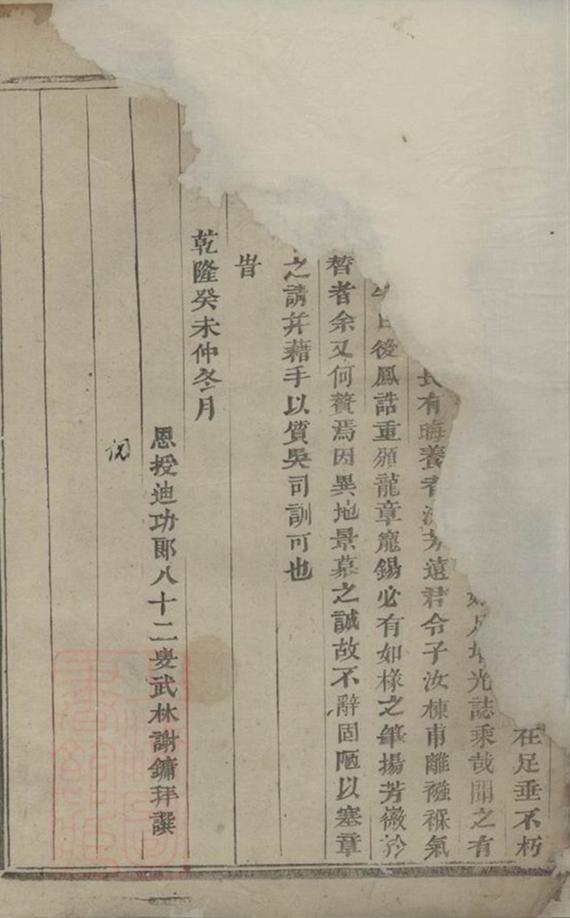 在足垂不朽
光誌乘哉聞之有
長有晦養者流芳遠君令子汝棟甫離襁褓氣
日後鳳誥重頒龍章寵錫必有如椽之筆揚芳徽於
替者余又何贅焉因異地景慕之誠故不辭固陋以塞章
之請并藉手以質吳司訓可也
旹
乾隆癸未仲冬月
恩授迪功郎八十二叟武林謝鏞拜譔